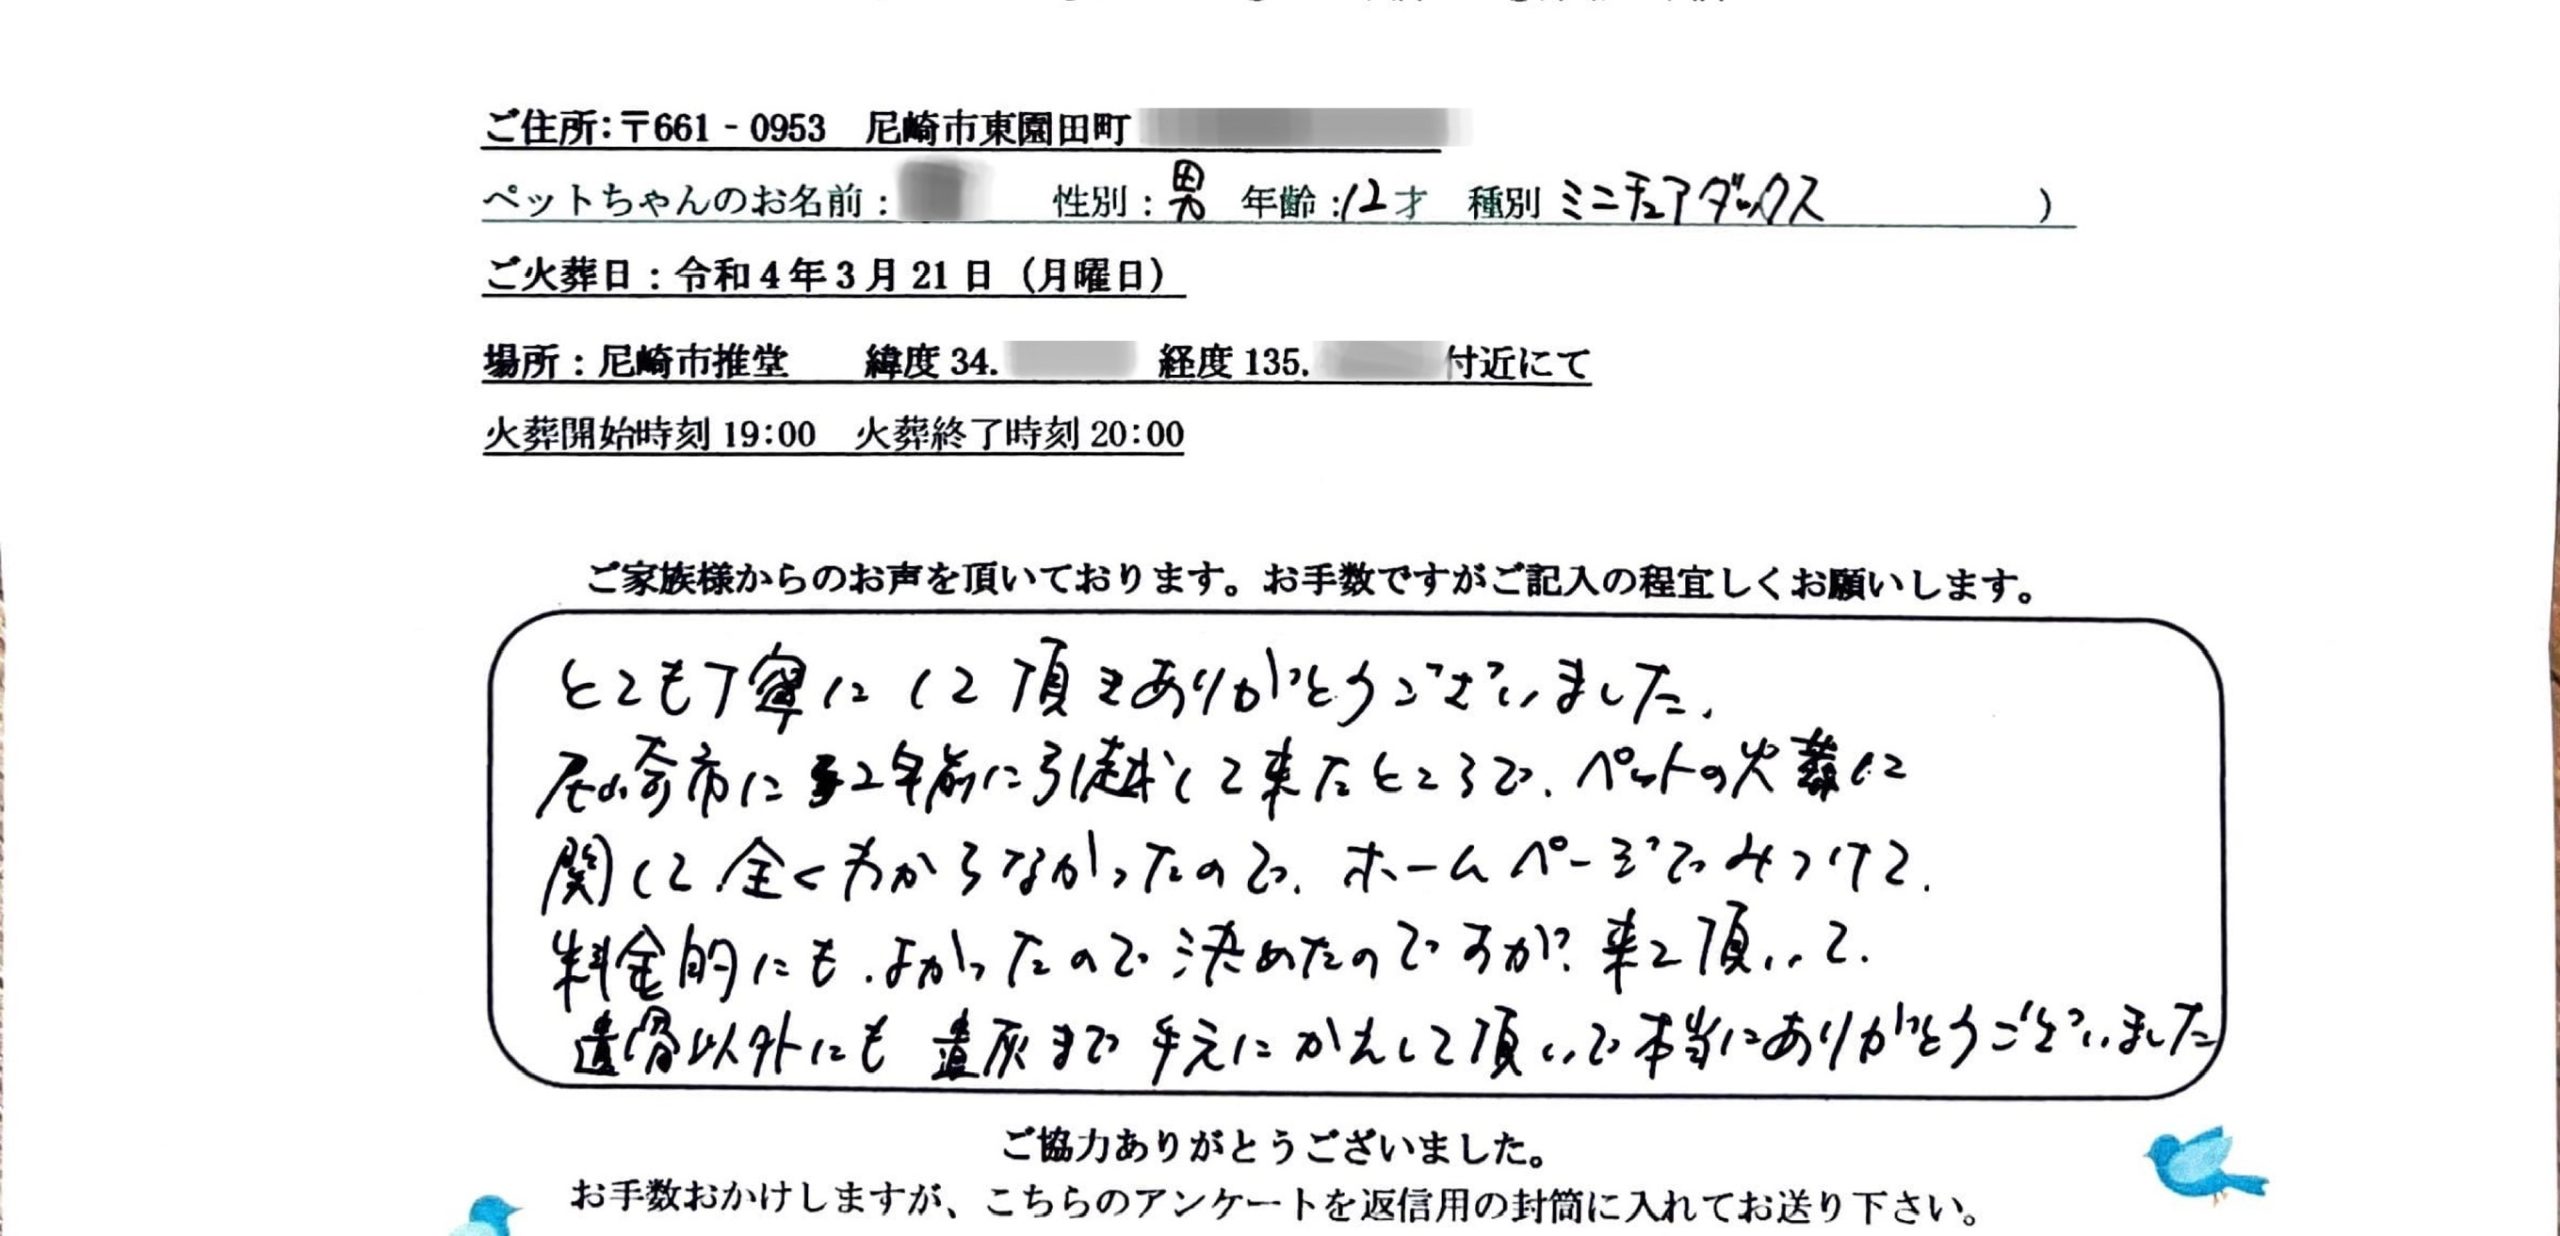 ご住所:〒661‐0953 尼崎市東園田町
ペットちゃんのお名前: 性別:男 年齢:12才 種別 ミニチュアダックス )
ご火葬日:令和4年3月21日(月曜日)
場所:尼崎市推堂 緯度34. 経度135. 付近にて
火葬開始時刻19:00 火葬終了時刻20:00
ご家族様からのお声を頂いております。お手数ですがご記入の程宜しくお願いします。
とても丁寧にして頂きありがとうございました。
尼崎市に2年前に引越して来たところで、ペットの火葬に
関して全くわからなかったので、ホームページでみつけて、
料金的にも、よかったので決めたのですが、来て頂いて、
遺骨以外にも遺灰まで手元にかえして頂いて本当にありがとうございました
ご協力ありがとうございました。
お手数おかけしますが、こちらのアンケートを返信用の封筒に入れてお送り下さい。